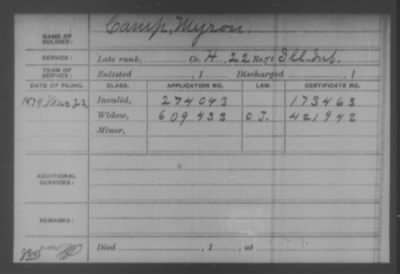 Camp, Myron.
NAME OF SOLDIER:
SERVICE: Late rank, Co. H, 22 Reg't Ill. Inf.
TERM OF SERVICE: Enlisted , 1 Discharged , 1
DATE OF FILING. CLASS. APPLICATION NO. LAW. CERTIFICATE NO.
1879 Mar 22 Invalid, 274043 173463
Widow, 609433 O.J. 421942
Minor,
ADDITIONAL SERVICES:
REMARKS:
Died , 1 , at